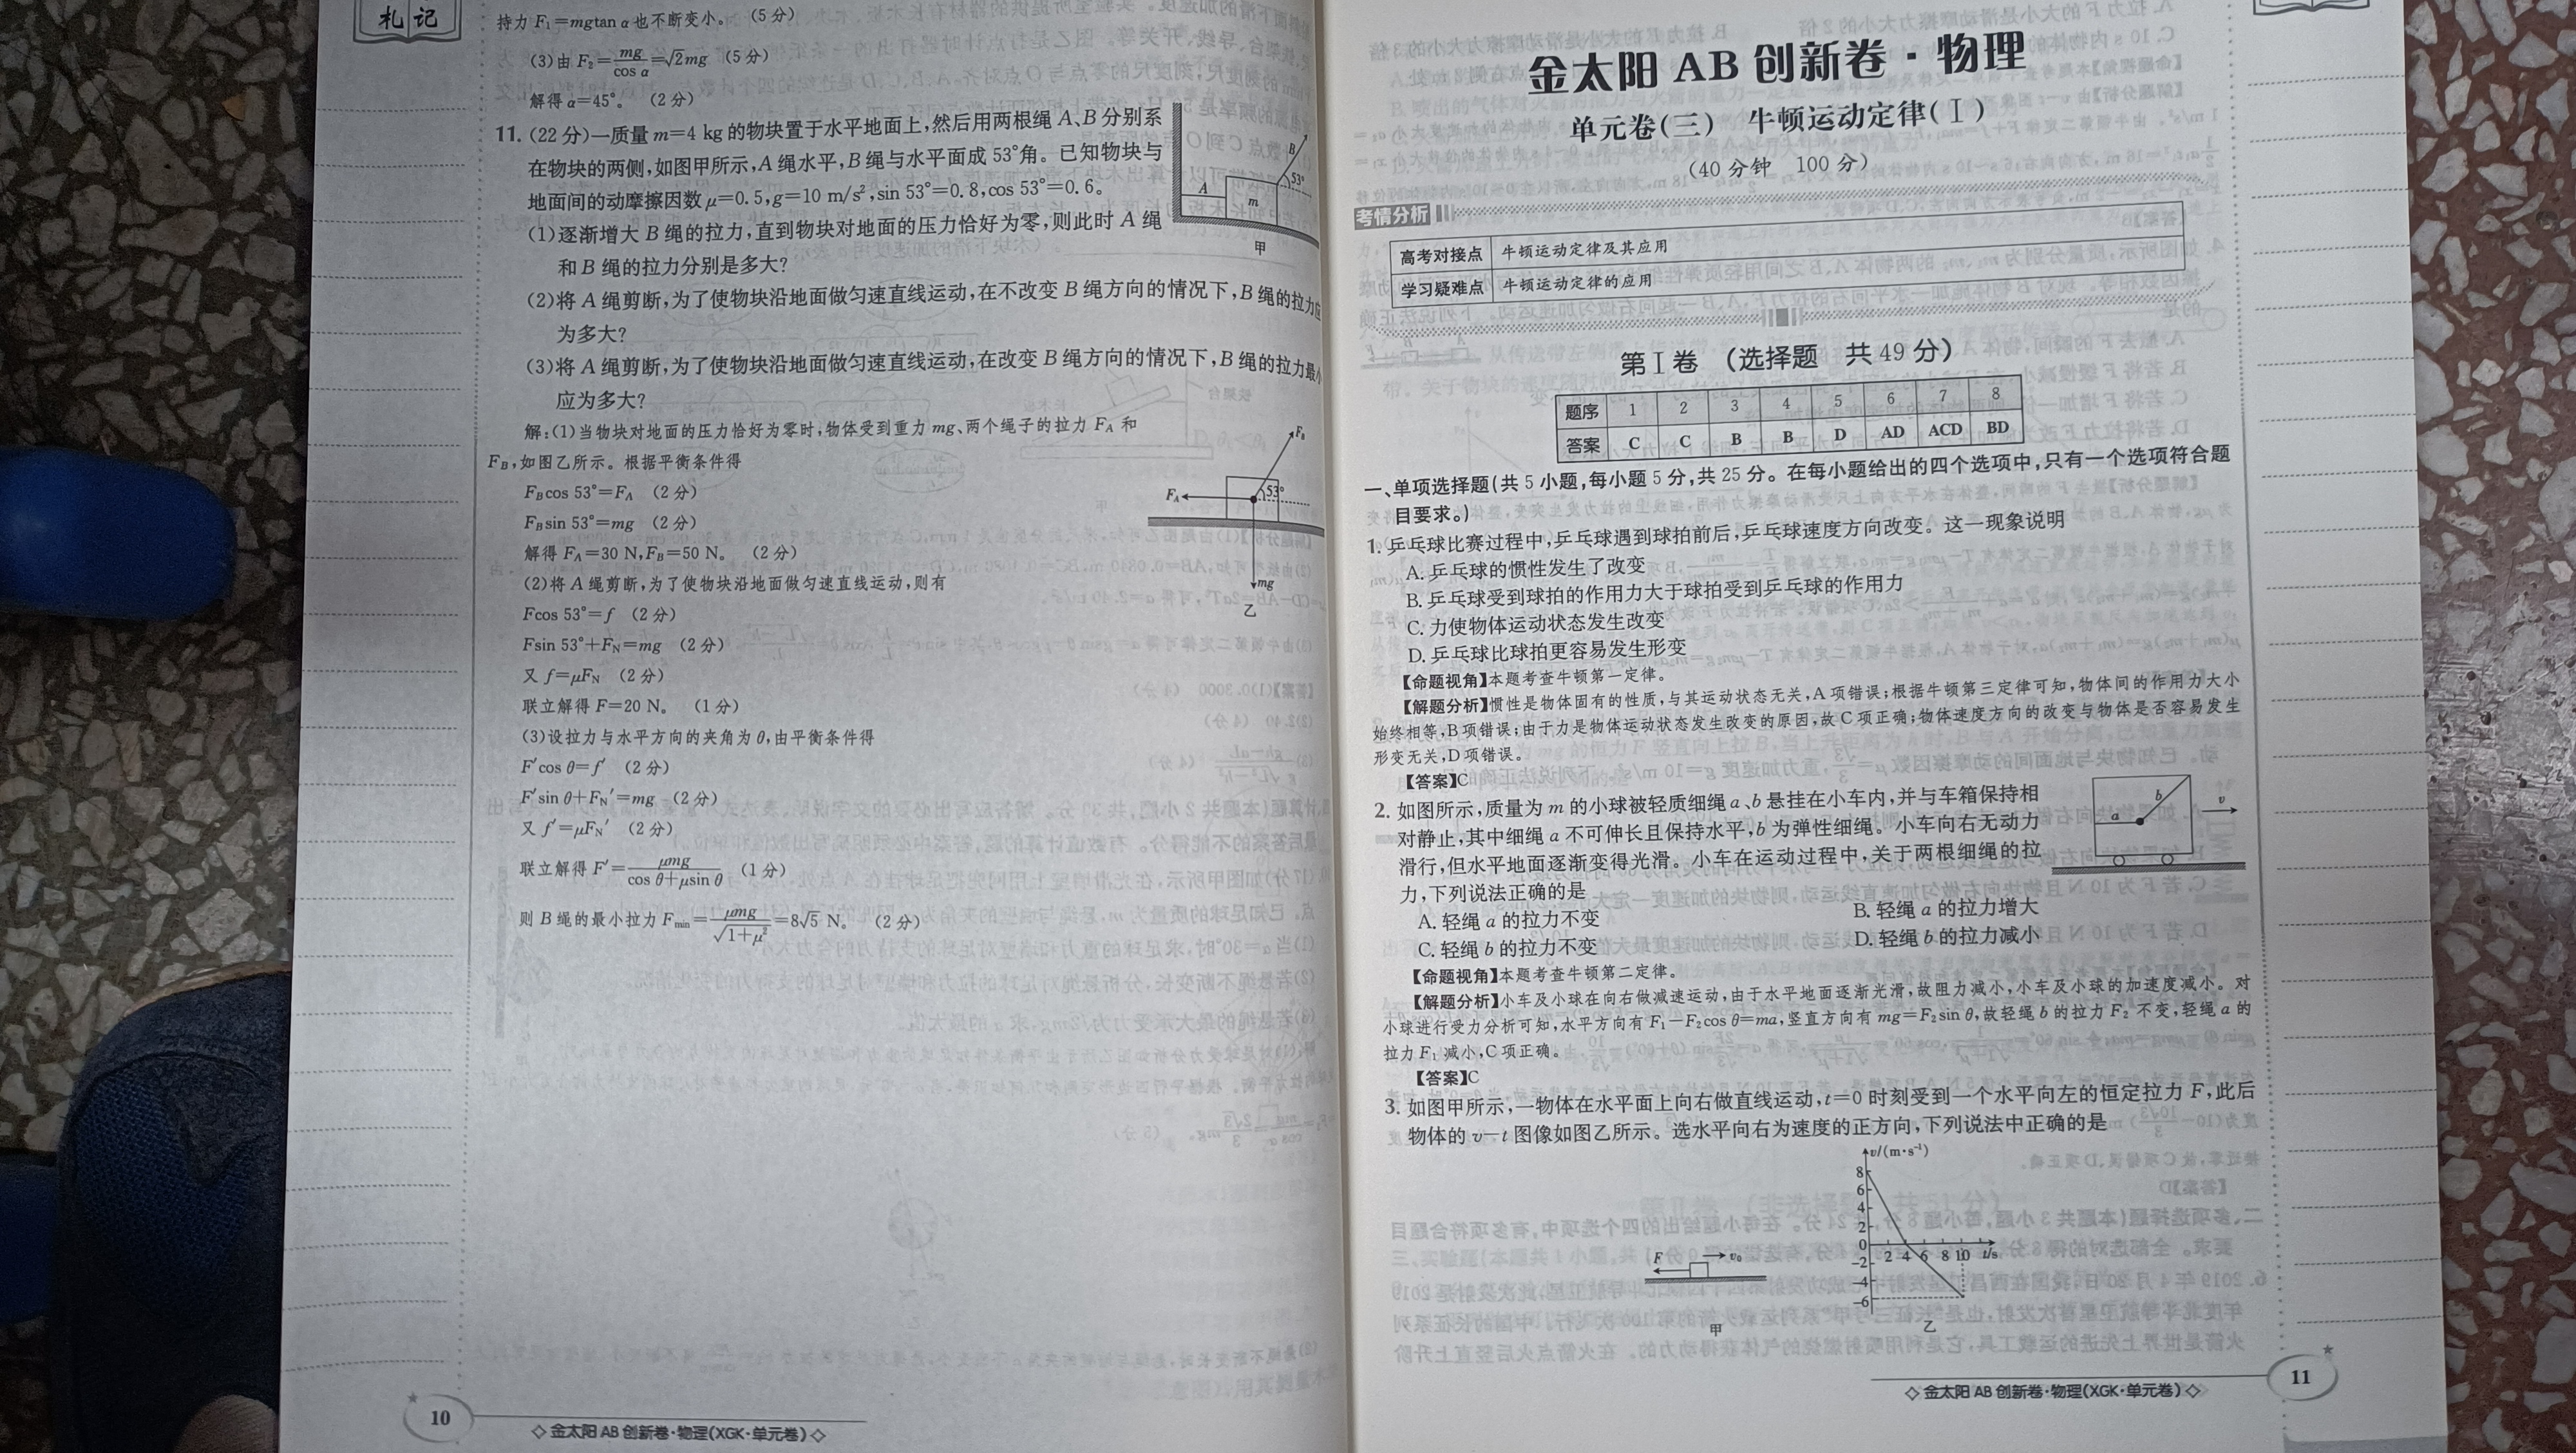 札记
持力 F₁=mgtan α 也不断变小。 (5 分)
(3)由 F₂=mg/cos α=√2mg (5 分)
解得 α=45°。 (2 分)
11. (22 分)一质量 m=4 kg 的物块置于水平地面上,然后用两根绳 A、B 分别系
在物块的两侧,如图甲所示,A 绳水平,B 绳与水平面成 53°角。已知物块与
地面间的动摩擦因数 μ=0.5,g=10 m/s²,sin 53°=0.8,cos 53°=0.6。
(1)逐渐增大 B 绳的拉力,直到物块对地面的压力恰好为零,则此时 A 绳
和 B 绳的拉力分别是多大?
A
B
53°
m
甲
(2)将 A 绳剪断,为了使物块沿地面做匀速直线运动,在不改变 B 绳方向的情况下,B 绳的拉力应
为多大?
(3)将 A 绳剪断,为了使物块沿地面做匀速直线运动,在改变 B 绳方向的情况下,B 绳的拉力最小
应为多大?
解:(1)当物块对地面的压力恰好为零时,物体受到重力 mg、两个绳子的拉力 F_A 和
F_B,如图乙所示。根据平衡条件得
F_B cos 53°=F_A (2 分)
F_B sin 53°=mg (2 分)
解得 F_A=30 N,F_B=50 N。 (2 分)
(2)将 A 绳剪断,为了使物块沿地面做匀速直线运动,则有
Fcos 53°=f (2 分)
Fsin 53°+F_N=mg (2 分)
又 f=μF_N (2 分)
联立解得 F=20 N。 (1 分)
(3)设拉力与水平方向的夹角为 θ,由平衡条件得
F′cos θ=f′ (2 分)
F′sin θ+F_N′=mg (2 分)
又 f′=μF_N′ (2 分)
联立解得 F′=μmg/(cos θ+μsin θ) (1 分)
则 B 绳的最小拉力 F_min=μmg/√(1+μ²)=8√5 N。 (2 分)
F_B
F_A
53°
mg
乙
10
◇金太阳 AB 创新卷·物理(XGK·单元卷)◇
金太阳 AB 创新卷·物理
单元卷(三) 牛顿运动定律(Ⅰ)
(40 分钟 100 分)
考情分析
高考对接点 牛顿运动定律及其应用
学习疑难点 牛顿运动定律的应用
第Ⅰ卷 (选择题 共 49 分)
题序 1 2 3 4 5 6 7 8
答案 C C B B D AD ACD BD
一、单项选择题(共 5 小题,每小题 5 分,共 25 分。在每小题给出的四个选项中,只有一个选项符合题
目要求。)
1. 乒乓球比赛过程中,乒乓球遇到球拍前后,乒乓球速度方向改变。这一现象说明
A. 乒乓球的惯性发生了改变
B. 乒乓球受到球拍的作用力大于球拍受到乒乓球的作用力
C. 力使物体运动状态发生改变
D. 乒乓球比球拍更容易发生形变
【命题视角】本题考查牛顿第一定律。
【解题分析】惯性是物体固有的性质,与其运动状态无关,A 项错误;根据牛顿第三定律可知,物体间的作用力大小
始终相等,B 项错误;由于力是物体运动状态发生改变的原因,故 C 项正确;物体速度方向的改变与物体是否容易发生
形变无关,D 项错误。
【答案】C
2. 如图所示,质量为 m 的小球被轻质细绳 a、b 悬挂在小车内,并与车箱保持相
对静止,其中细绳 a 不可伸长且保持水平,b 为弹性细绳。小车向右无动力
滑行,但水平地面逐渐变得光滑。小车在运动过程中,关于两根细绳的拉
力,下列说法正确的是
a
b
v
A. 轻绳 a 的拉力不变 B. 轻绳 a 的拉力增大
C. 轻绳 b 的拉力不变 D. 轻绳 b 的拉力减小
【命题视角】本题考查牛顿第二定律。
【解题分析】小车及小球在向右做减速运动,由于水平地面逐渐光滑,故阻力减小,小车及小球的加速度减小。对
小球进行受力分析可知,水平方向有 F₁−F₂cos θ=ma,竖直方向有 mg=F₂sin θ,故轻绳 b 的拉力 F₂ 不变,轻绳 a 的
拉力 F₁ 减小,C 项正确。
【答案】C
3. 如图甲所示,一物体在水平面上向右做直线运动,t=0 时刻受到一个水平向左的恒定拉力 F,此后
物体的 v−t 图像如图乙所示。选水平向右为速度的正方向,下列说法中正确的是
F
v₀
甲
v/(m·s⁻¹)
8
6
4
2
0 2 4 6 8 10 t/s
−2
−4
−6
乙
◇金太阳 AB 创新卷·物理(XGK·单元卷)◇
11